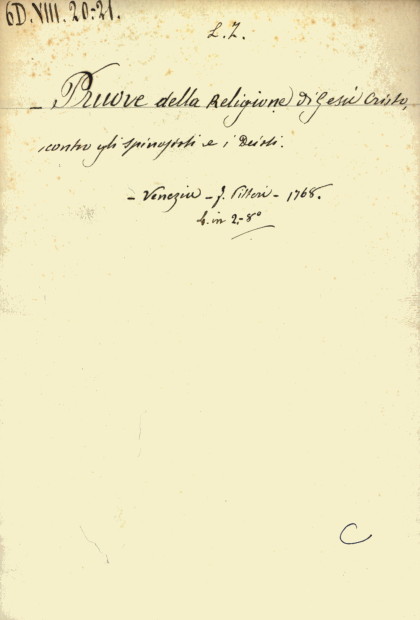 6D.VIII.20-21.
L. Z.
- Pruove della Religione di Gesù Cristo,
contro gli spinosisti e i Deisti.
- Venezia - f. Pitteri - 1768.
t. in 2.-8°
C